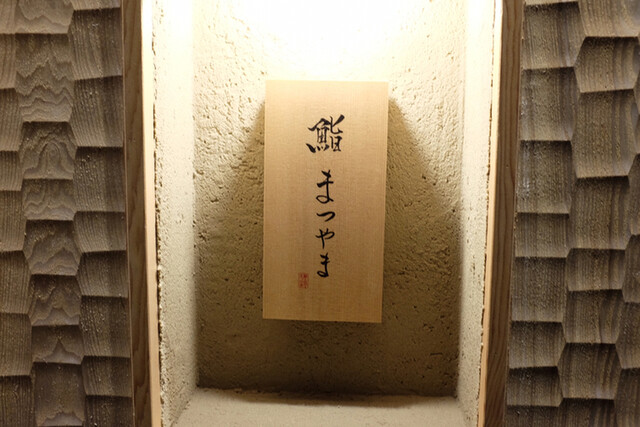 鮨 まつやま